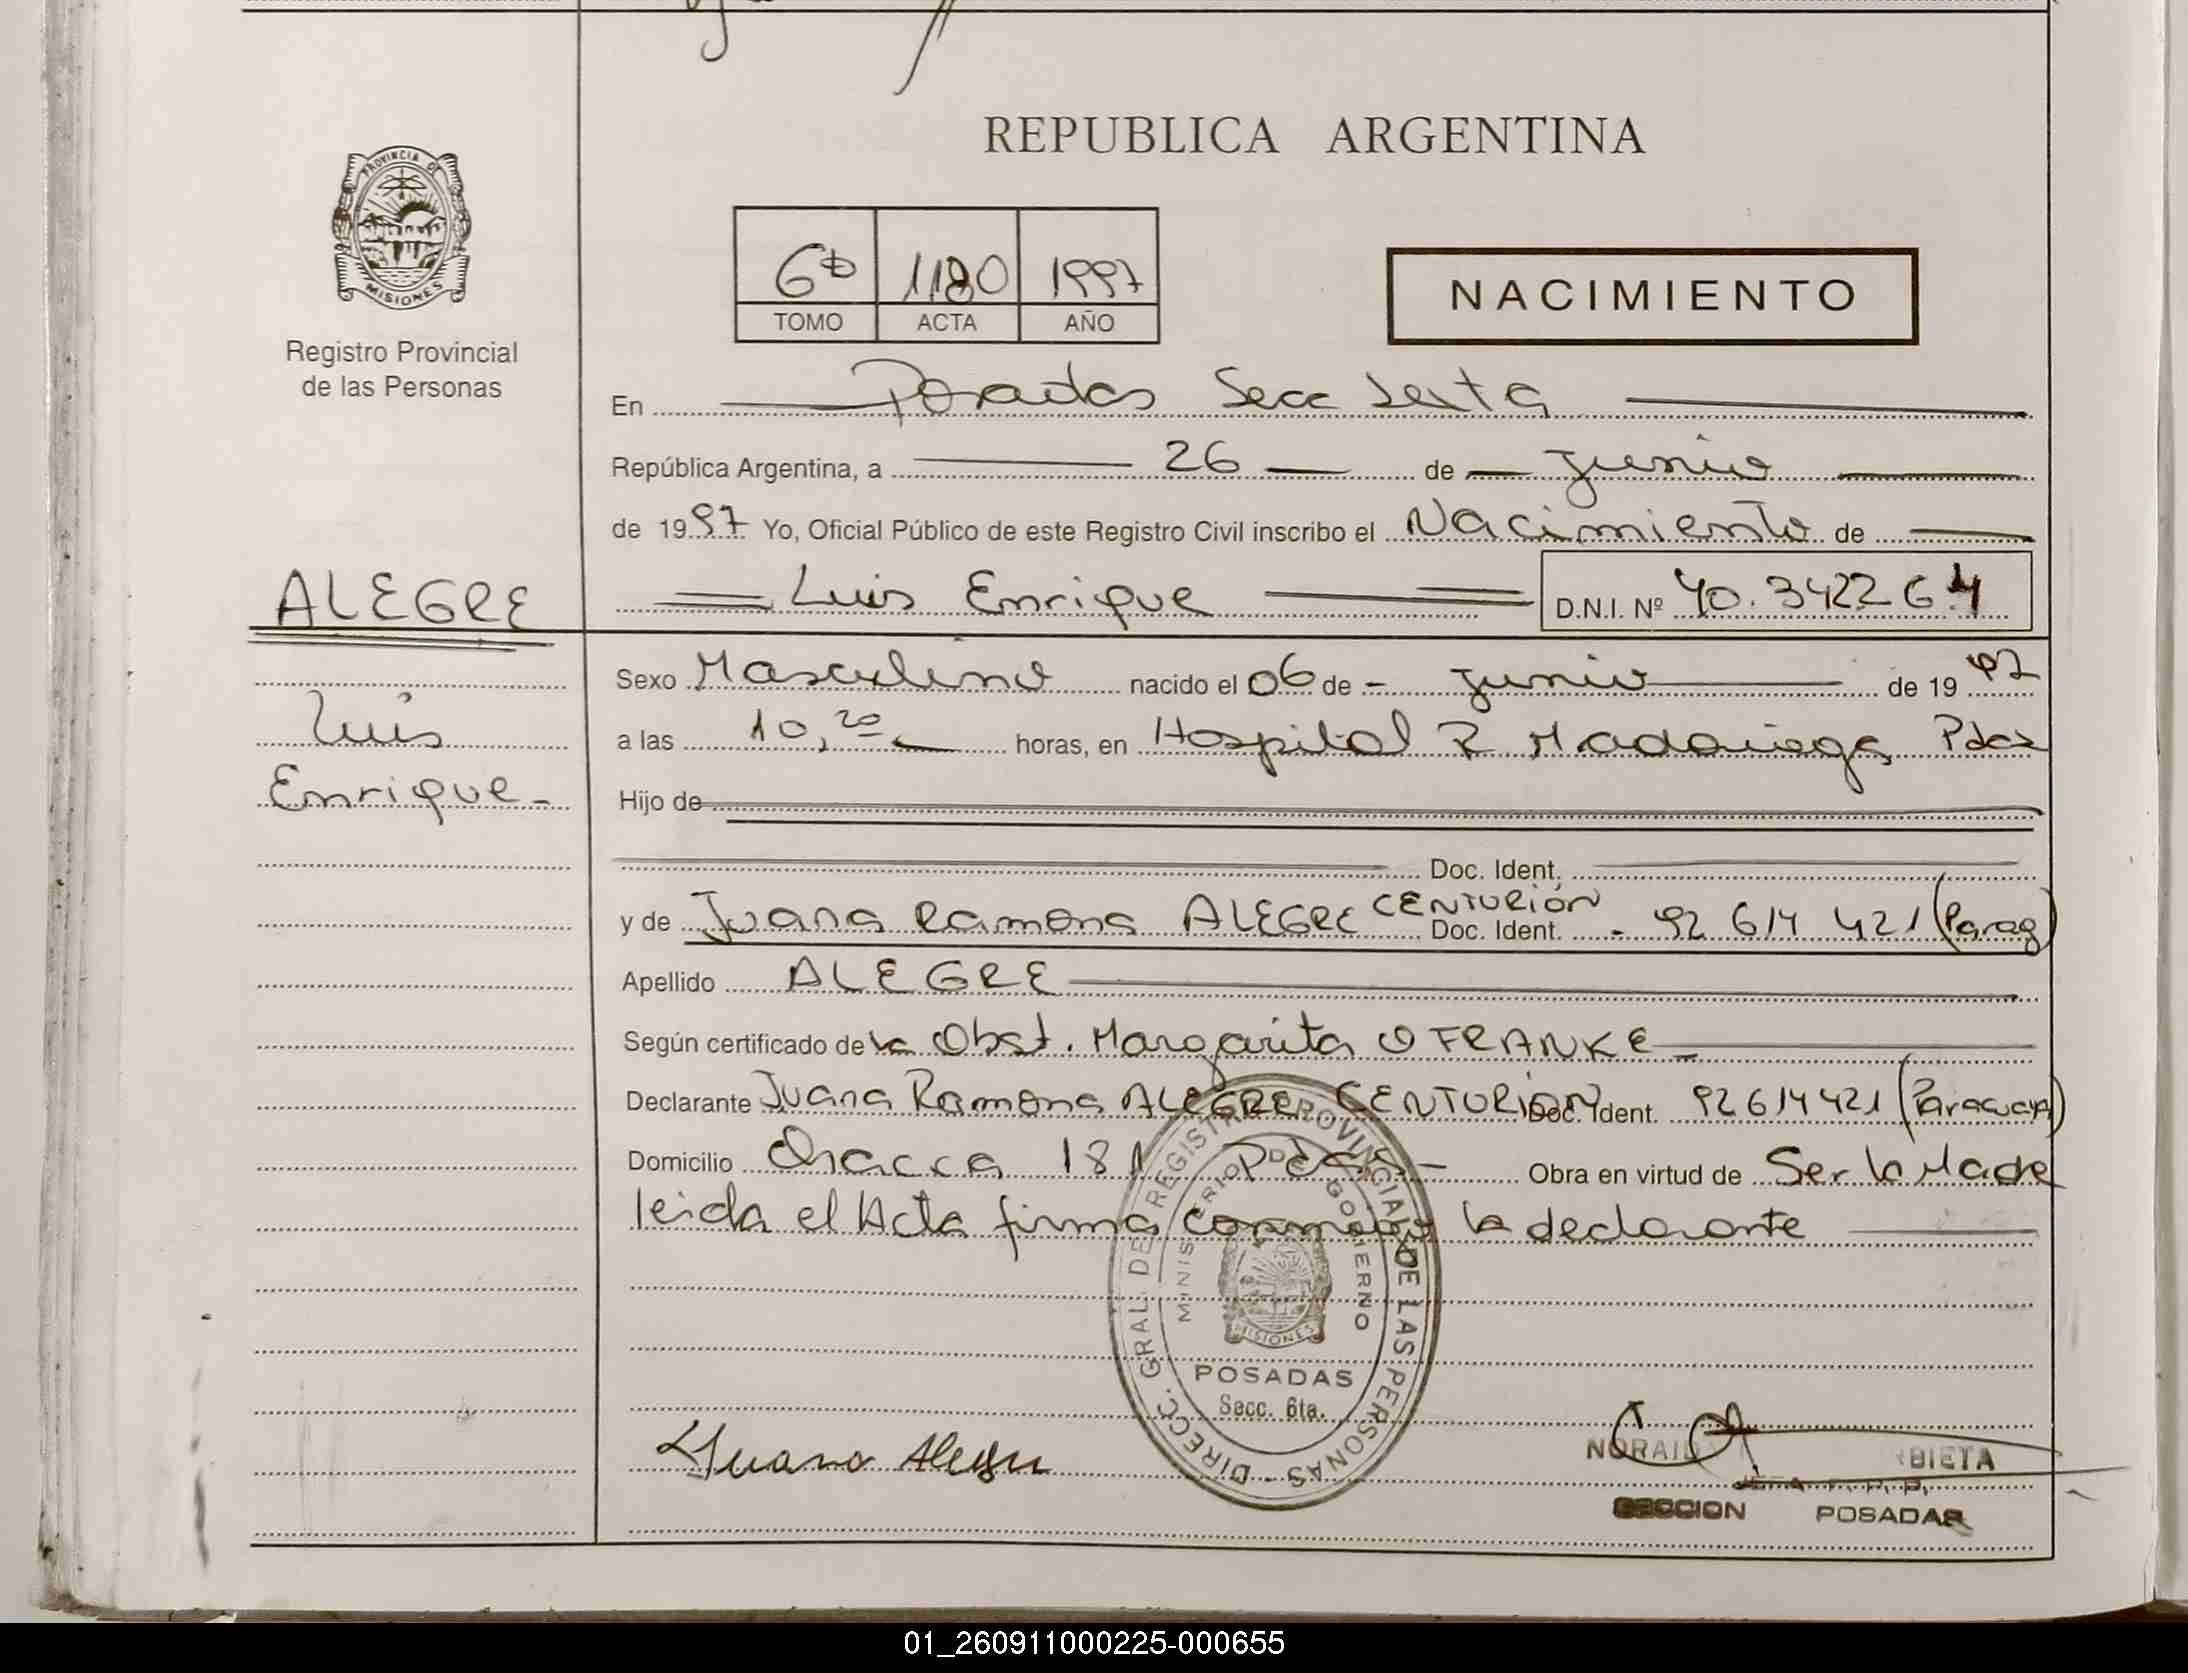 REPUBLICA ARGENTINA
PROVINCIA DE
MISIONES
Registro Provincial
de las Personas
6to 1180 1997
TOMO ACTA AÑO
NACIMIENTO
En Posadas Secc Sexta
República Argentina, a 26 de Junio
de 1997 Yo, Oficial Público de este Registro Civil inscribo el Nacimiento de
ALEGRE
Luis Enrique D.N.I. Nº 40.342264
Sexo Masculino nacido el 06 de - Junio de 1997
Luis
a las 10,20 horas, en Hospital R Madariaga Pdas
Enrique-
Hijo de
Doc. Ident.
y de Juana Ramona ALEGRE CENTURIÓN Doc. Ident. - 92 614 421 (Parag)
Apellido ALEGRE
Según certificado de la Obst. Margarita O FRANKE -
Declarante Juana Ramona ALEGRE CENTURIÓN Doc. Ident. 92614421 (Paraguaya)
Domicilio Chacra 181 Pdas- Obra en virtud de Ser la Madre
leida el Acta firma conmigo la declarante
DIRECC. GRAL. DE REGISTRO PROVINCIAL DE LAS PERSONAS
MINISTERIO DE GOBIERNO
MISIONES
POSADAS
Secc. 6ta.
Juana Alegre
SECCION POSADAS
01_260911000225-000655